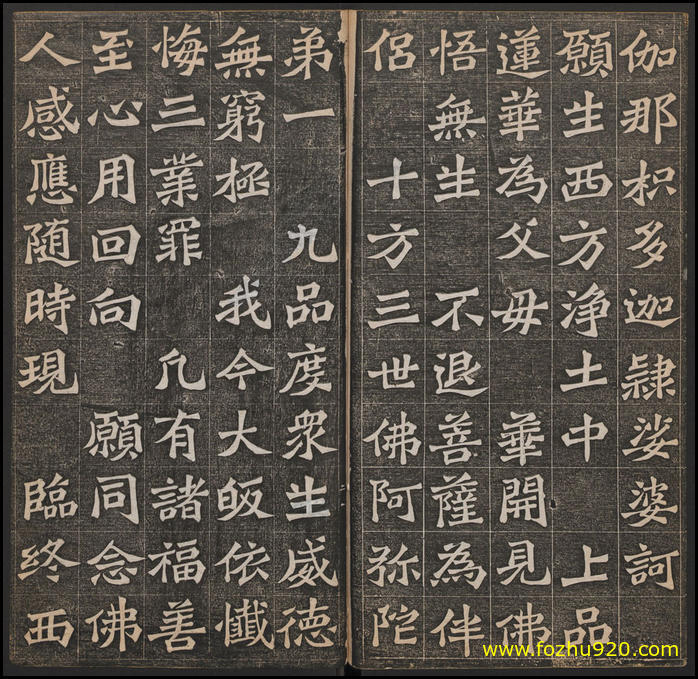 伽那枳多迦隸娑婆訶
願生西方浄土中 上品
蓮華為父母 華開見佛
悟無生 不退菩薩為伴
侶 十方三世佛阿弥陀
弟一 九品度衆生威德
無窮極 我今大皈依懺
悔三業罪 凡有諸福善
至心用回向 願同念佛
人感應随時現 臨終西
www.fozhu920.com